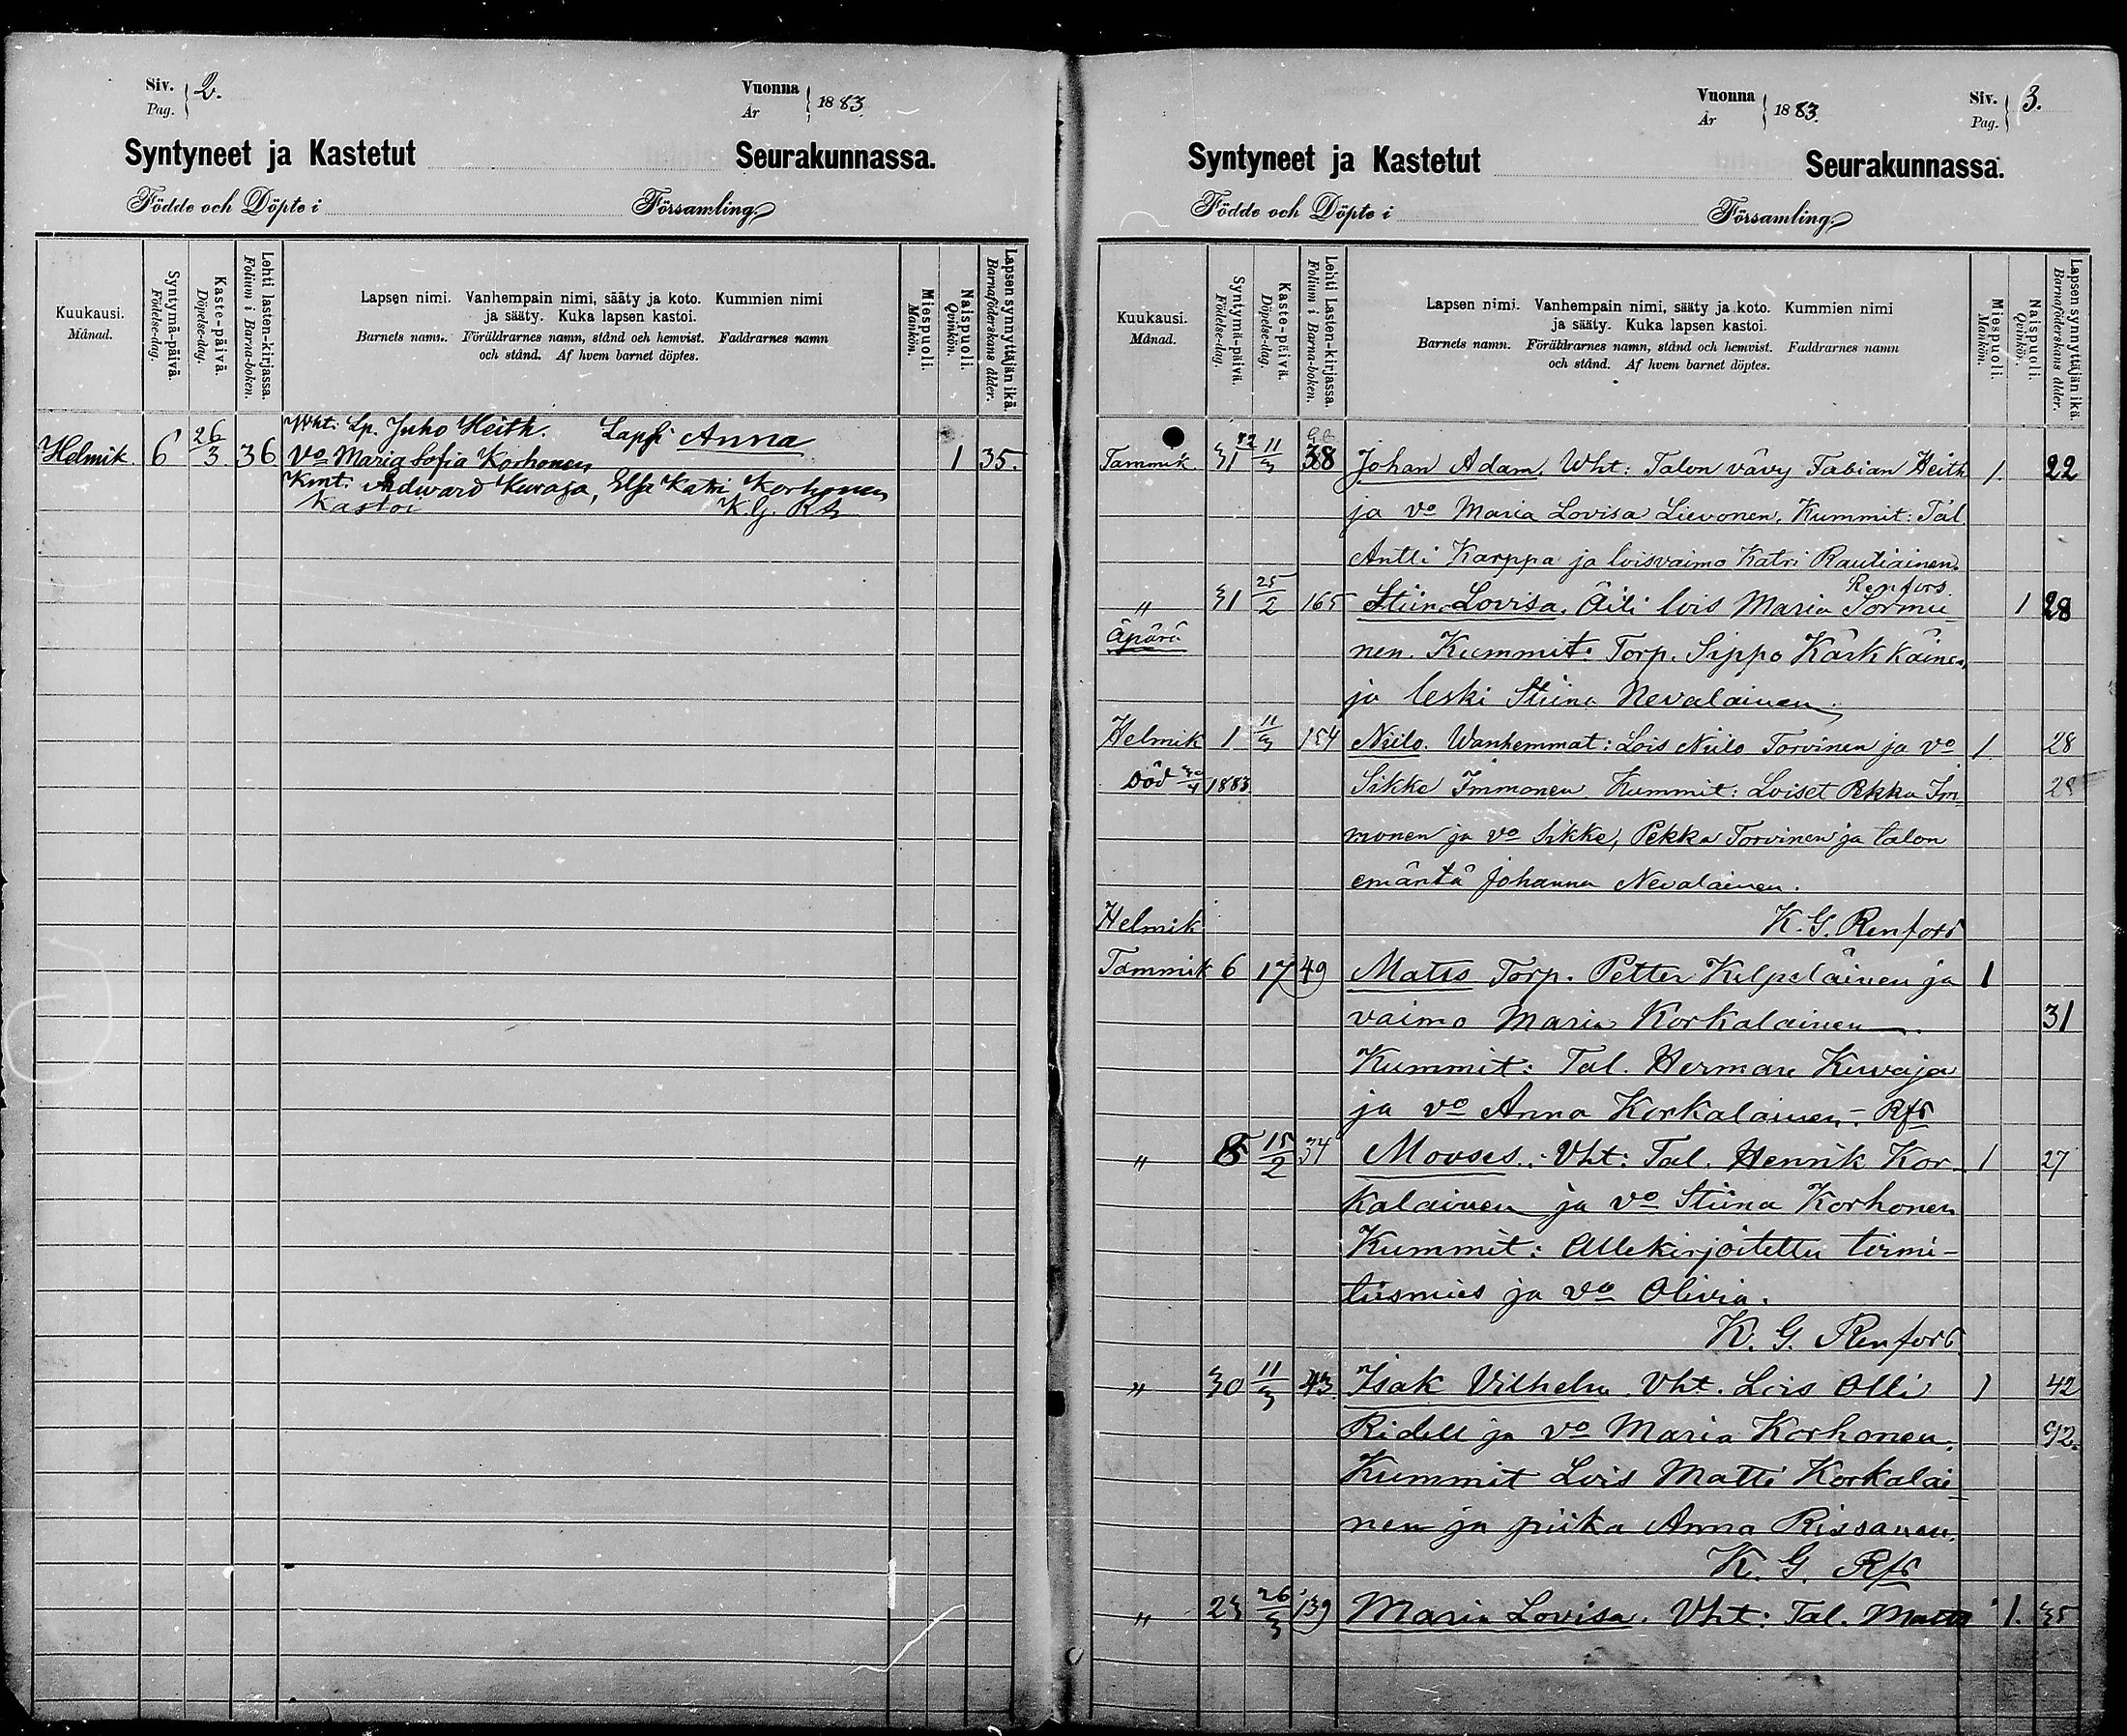 Siv. Pag. 2.
Vuonna År 1883.
Syntyneet ja Kastetut Seurakunnassa.
Födde och Döpte i Församling.
Kuukausi. Månad.
Syntymä-päivä. Födelse-dag.
Kaste-päivä. Döpelse-dag.
Lehti lasten-kirjassa. Folium i Barna-boken.
Lapsen nimi. Vanhempain nimi, sääty ja koto. Kummien nimi
ja sääty. Kuka lapsen kastoi.
Barnets namn. Föräldrarnes namn, stånd och hemvist. Faddrarnes namn
och stånd. Af hvem barnet döptes.
Miespuoli. Mankön.
Naispuoli. Qvinkön.
Lapsen synnyttäjän ikä. Barnaföderskans ålder.
Wht. Lp. Juho Heith. Lapsi Anna
Helmik. 6 26/3 36 Vo Maria Sofia Korhonen 1 35.
Kmt. Edward Kuvaja, Elsa Katri Korhonen
Kastoi K.G. Rfs
Vuonna År 1883.
Siv. Pag. 3.
Syntyneet ja Kastetut Seurakunnassa.
Födde och Döpte i Församling.
Kuukausi. Månad.
Syntymä-päivä. Födelse-dag.
Kaste-päivä. Döpelse-dag.
Lehti Lasten-kirjassa. Folium i Barna-boken.
Lapsen nimi. Vanhempain nimi, sääty ja koto. Kummien nimi
ja sääty. Kuka lapsen kastoi.
Barnets namn. Föräldrarnes namn, stånd och hemvist. Faddrarnes namn
och stånd. Af hvem barnet döptes.
Miespuoli. Mankön.
Naispuoli. Qvinkön.
Lapsen synnyttäjän ikä. Barnaföderskans ålder.
Tammik. 31 82 11/3 38 Johan Adam. Wht: Talon vävy Fabian Heith 1. 22
ja vo Maria Lovisa Lievonen, Kummit: Tal.
Antti Karppa ja loisvaimo Katri Rautiainen.
Renfors.
" 31 25/2 165 Stiin Lovisa. Äiti lois Maria Sormu- 1 28
Äpärä nen. Kummit: Torp. Sippo Kärkkäinen,
ja leski Stiina Nevalainen.
Helmik 1 11/3 154 Niilo. Wanhemmat: Lois Niilo Torvinen ja vo 1 28
Död 30/4 1883 Sikke Immonen. Kummit: Loiset Pekka Im- 28
monen ja vo Sikke, Pekka Torvinen ja talon
emäntä Johanna Nevalainen.
Helmik K. G. Renfors
Tammik 6 17 49 Matts Torp. Petter Kilpeläinen ja 1
vaimo Maria Korkalainen. 31
Kummit: Tal. Herman Kuvaja
ja vo Anna Korkalainen. - Rfs
" 8 15/2 34 Mooses. Vht: Tal. Henrik Kor- 1 27
kalainen ja vo Stiina Korhonen
Kummit: Allekirjoitettu toimi-
tusmies ja vo Olivia.
K. G. Renfors.
" 30 11/3 43 Isak Vilhelm. Vht. Lois Olli 1 42
Ridell ja vo Maria Korhonen. 42.
Kummit Lois Matti Korkalai-
nen ja piika Anna Rissanen.
K. G. Rfs
" 23 26/3 139 Maria Lovisa. Vht: Tal. Matts 1. 35